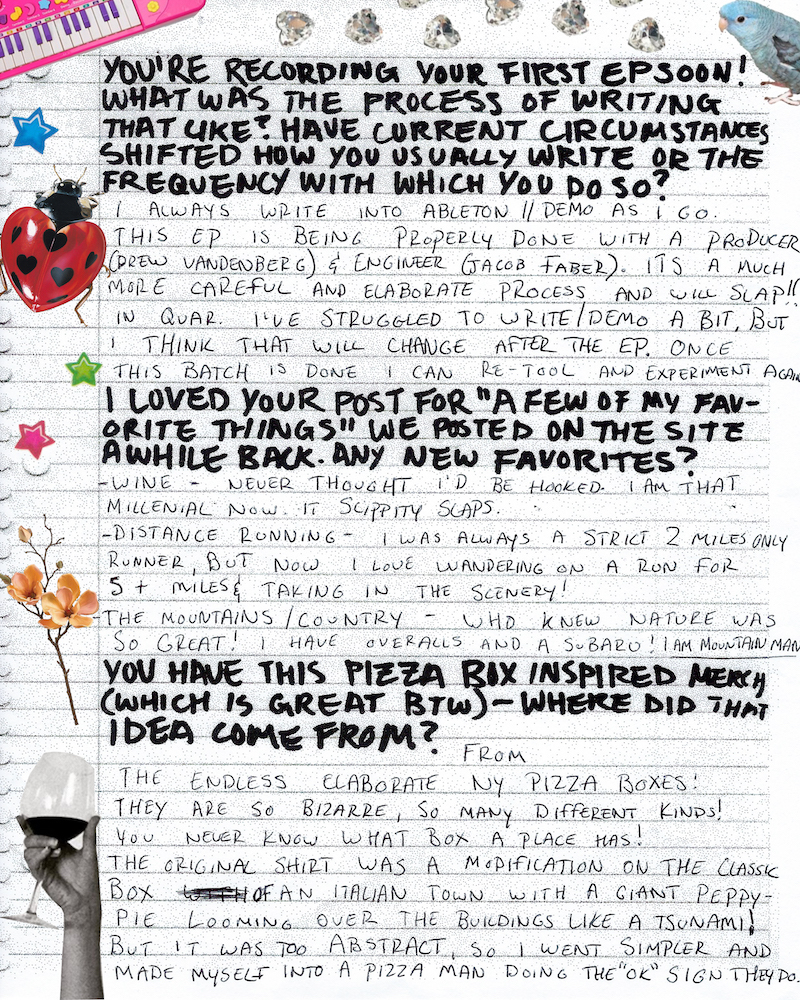 YOU'RE RECORDING YOUR FIRST EP SOON!
WHAT WAS THE PROCESS OF WRITING
THAT LIKE? HAVE CURRENT CIRCUMSTANCES
SHIFTED HOW YOU USUALLY WRITE OR THE
FREQUENCY WITH WHICH YOU DO SO?
I ALWAYS WRITE INTO ABLETON // DEMO AS I GO.
THIS EP IS BEING PROPERLY DONE WITH A PRODUCER
(DREW VANDENBERG) & ENGINEER (JACOB FABER). ITS A MUCH
MORE CAREFUL AND ELABORATE PROCESS AND WILL SLAP!!
IN QUAR. I'VE STRUGGLED TO WRITE/DEMO A BIT, BUT
I THINK THAT WILL CHANGE AFTER THE EP. ONCE
THIS BATCH IS DONE I CAN RE-TOOL AND EXPERIMENT AGAIN
I LOVED YOUR POST FOR "A FEW OF MY FAV-
ORITE THINGS" WE POSTED ON THE SITE
AWHILE BACK. ANY NEW FAVORITES?
-WINE - NEVER THOUGHT I'D BE HOOKED. I AM THAT
MILLENIAL NOW. IT SLIPPITY SLAPS.
-DISTANCE RUNNING - I WAS ALWAYS A STRICT 2 MILES ONLY
RUNNER, BUT NOW I LOVE WANDERING ON A RUN FOR
5+ MILES & TAKING IN THE SCENERY!
-THE MOUNTAINS / COUNTRY - WHO KNEW NATURE WAS
SO GREAT! I HAVE OVERALLS AND A SUBARU! I AM MOUNTAIN MAN
YOU HAVE THIS PIZZA BOX INSPIRED MERCH
(WHICH IS GREAT BTW) - WHERE DID THAT
IDEA COME FROM?
FROM
THE ENDLESS ELABORATE NY PIZZA BOXES!
THEY ARE SO BIZARRE, SO MANY DIFFERENT KINDS!
YOU NEVER KNOW WHAT BOX A PLACE HAS!
THE ORIGINAL SHIRT WAS A MODIFICATION ON THE CLASSIC
BOX OF AN ITALIAN TOWN WITH A GIANT PEPPY-
PIE LOOMING OVER THE BUILDINGS LIKE A TSUNAMI!
BUT IT WAS TOO ABSTRACT, SO I WENT SIMPLER AND
MADE MYSELF INTO A PIZZA MAN DOING THE "OK" SIGN THEY DO.